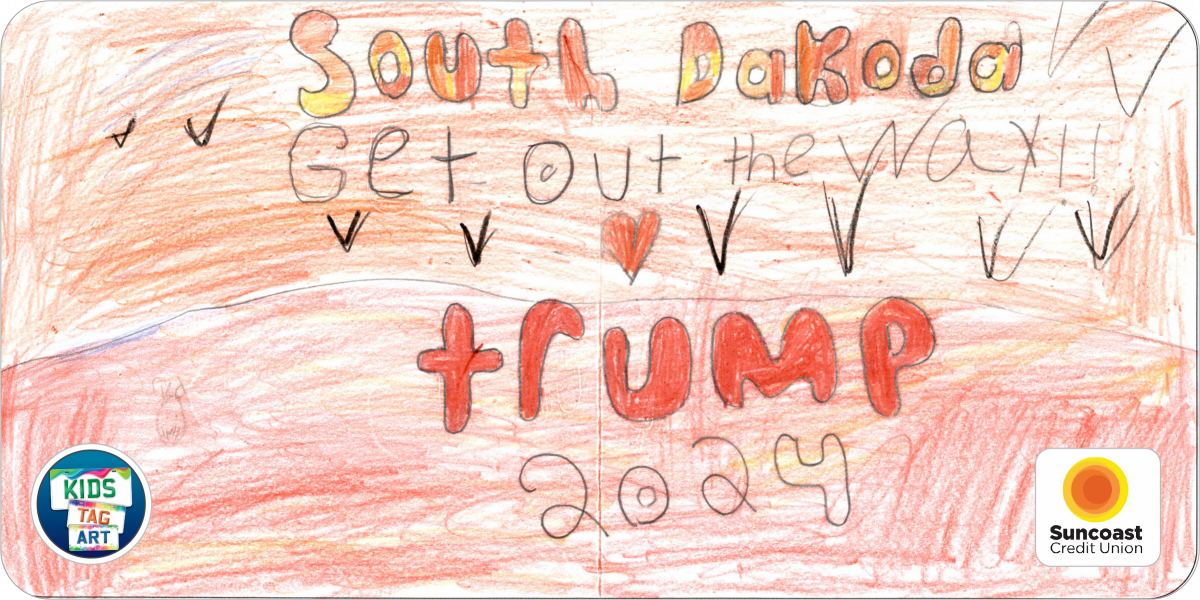 South Dakoda
Get out the way!!
trump
2024
KIDS
TAG
ART
Suncoast
Credit Union